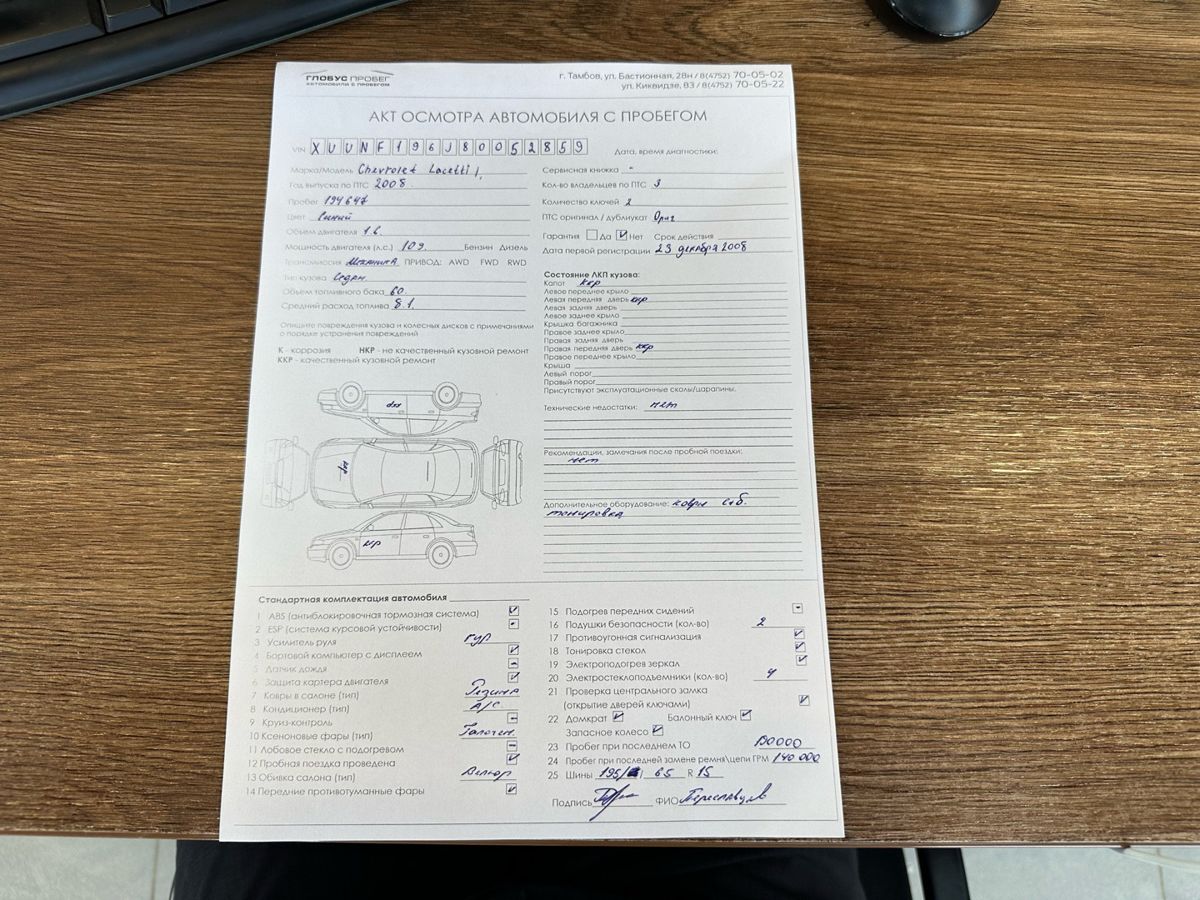 ГЛОБУС ПРОБЕГ
АВТОМОБИЛИ С ПРОБЕГОМ
г. Тамбов, ул. Бастионная, 28н / 8(4752) 70-05-02
ул. Киквидзе, 83 / 8(4752) 70-05-22
АКТ ОСМОТРА АВТОМОБИЛЯ С ПРОБЕГОМ
VIN XUUNF196J80052859
Дата, время диагностики:
Марка/Модель Chevrolet Lacetti
Год выпуска по ПТС 2008
Пробег 194647
Цвет Синий
Объем двигателя 1.6
Мощность двигателя (л.с.) 109 Бензин Дизель
Трансмиссия Механика ПРИВОД: AWD FWD RWD
Тип кузова Седан
Объем топливного бака 60
Средний расход топлива 8.1
Сервисная книжка -
Кол-во владельцев по ПТС 3
Количество ключей 2
ПТС оригинал / дубликат Ориг
Гарантия Да Нет Срок действия
Дата первой регистрации 23 декабря 2008
Состояние ЛКП кузова:
Капот ккр
Левое переднее крыло
Левая передняя дверь ккр
Левая задняя дверь
Левое заднее крыло
Крышка багажника
Правое заднее крыло
Правая задняя дверь
Правая передняя дверь ккр
Правое переднее крыло
Крыша
Левый порог
Правый порог
Присутствуют эксплуатационные сколы/царапины.
Опишите повреждения кузова и колесных дисков с примечаниями
о порядке устранения повреждений
К - коррозия НКР - не качественный кузовной ремонт
ККР - качественный кузовной ремонт
ккр
ккр
ккр
Технические недостатки: нет
Рекомендации, замечания после пробной поездки:
нет
Дополнительное оборудование: ковры
тонировка
Стандартная комплектация автомобиля
1 ABS (антиблокировочная тормозная система)
2 ESP (система курсовой устойчивости)
3 Усилитель руля гур
4 Бортовой компьютер с дисплеем
5 Датчик дождя
6 Защита картера двигателя
7 Ковры в салоне (тип) Резина
8 Кондиционер (тип) A/C
9 Круиз-контроль
10 Ксеноновые фары (тип) Галоген.
11 Лобовое стекло с подогревом
12 Пробная поездка проведена
13 Обивка салона (тип) Велюр
14 Передние противотуманные фары
15 Подогрев передних сидений
16 Подушки безопасности (кол-во) 2
17 Противоугонная сигнализация
18 Тонировка стекол
19 Электроподогрев зеркал
20 Электростеклоподъемники (кол-во) 4
21 Проверка центрального замка
(открытие дверей ключами)
22 Домкрат Балонный ключ
Запасное колесо
23 Пробег при последнем ТО
24 Пробег при последней замене ремня\цепи ГРМ 140 000
25 Шины 195/ 65 R 15
Подпись ФИО